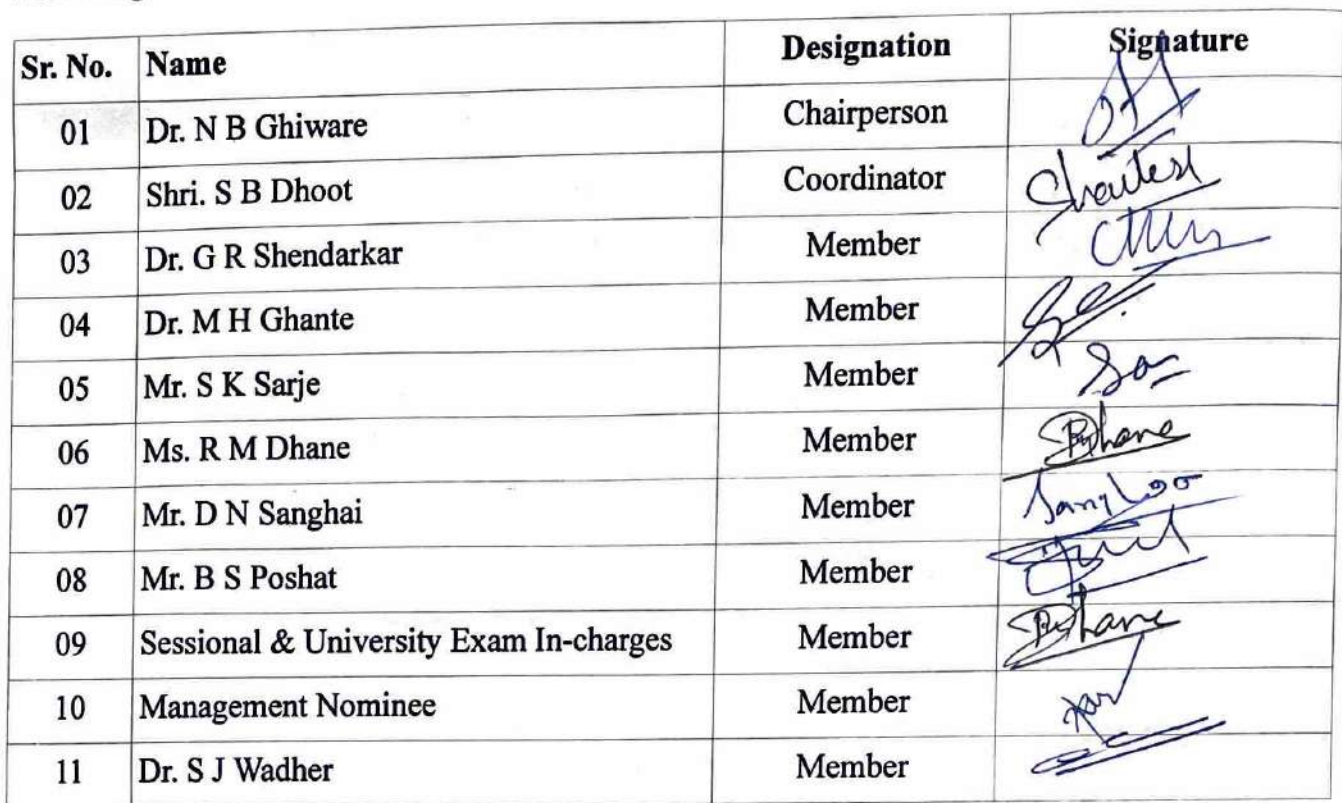 Sr. No. Name Designation Signature
01 Dr. N B Ghiware Chairperson
02 Shri. S B Dhoot Coordinator
03 Dr. G R Shendarkar Member
04 Dr. M H Ghante Member
05 Mr. S K Sarje Member
06 Ms. R M Dhane Member Dhane
07 Mr. D N Sanghai Member
08 Mr. B S Poshat Member
09 Sessional & University Exam In-charges Member Dhane
10 Management Nominee Member
11 Dr. S J Wadher Member